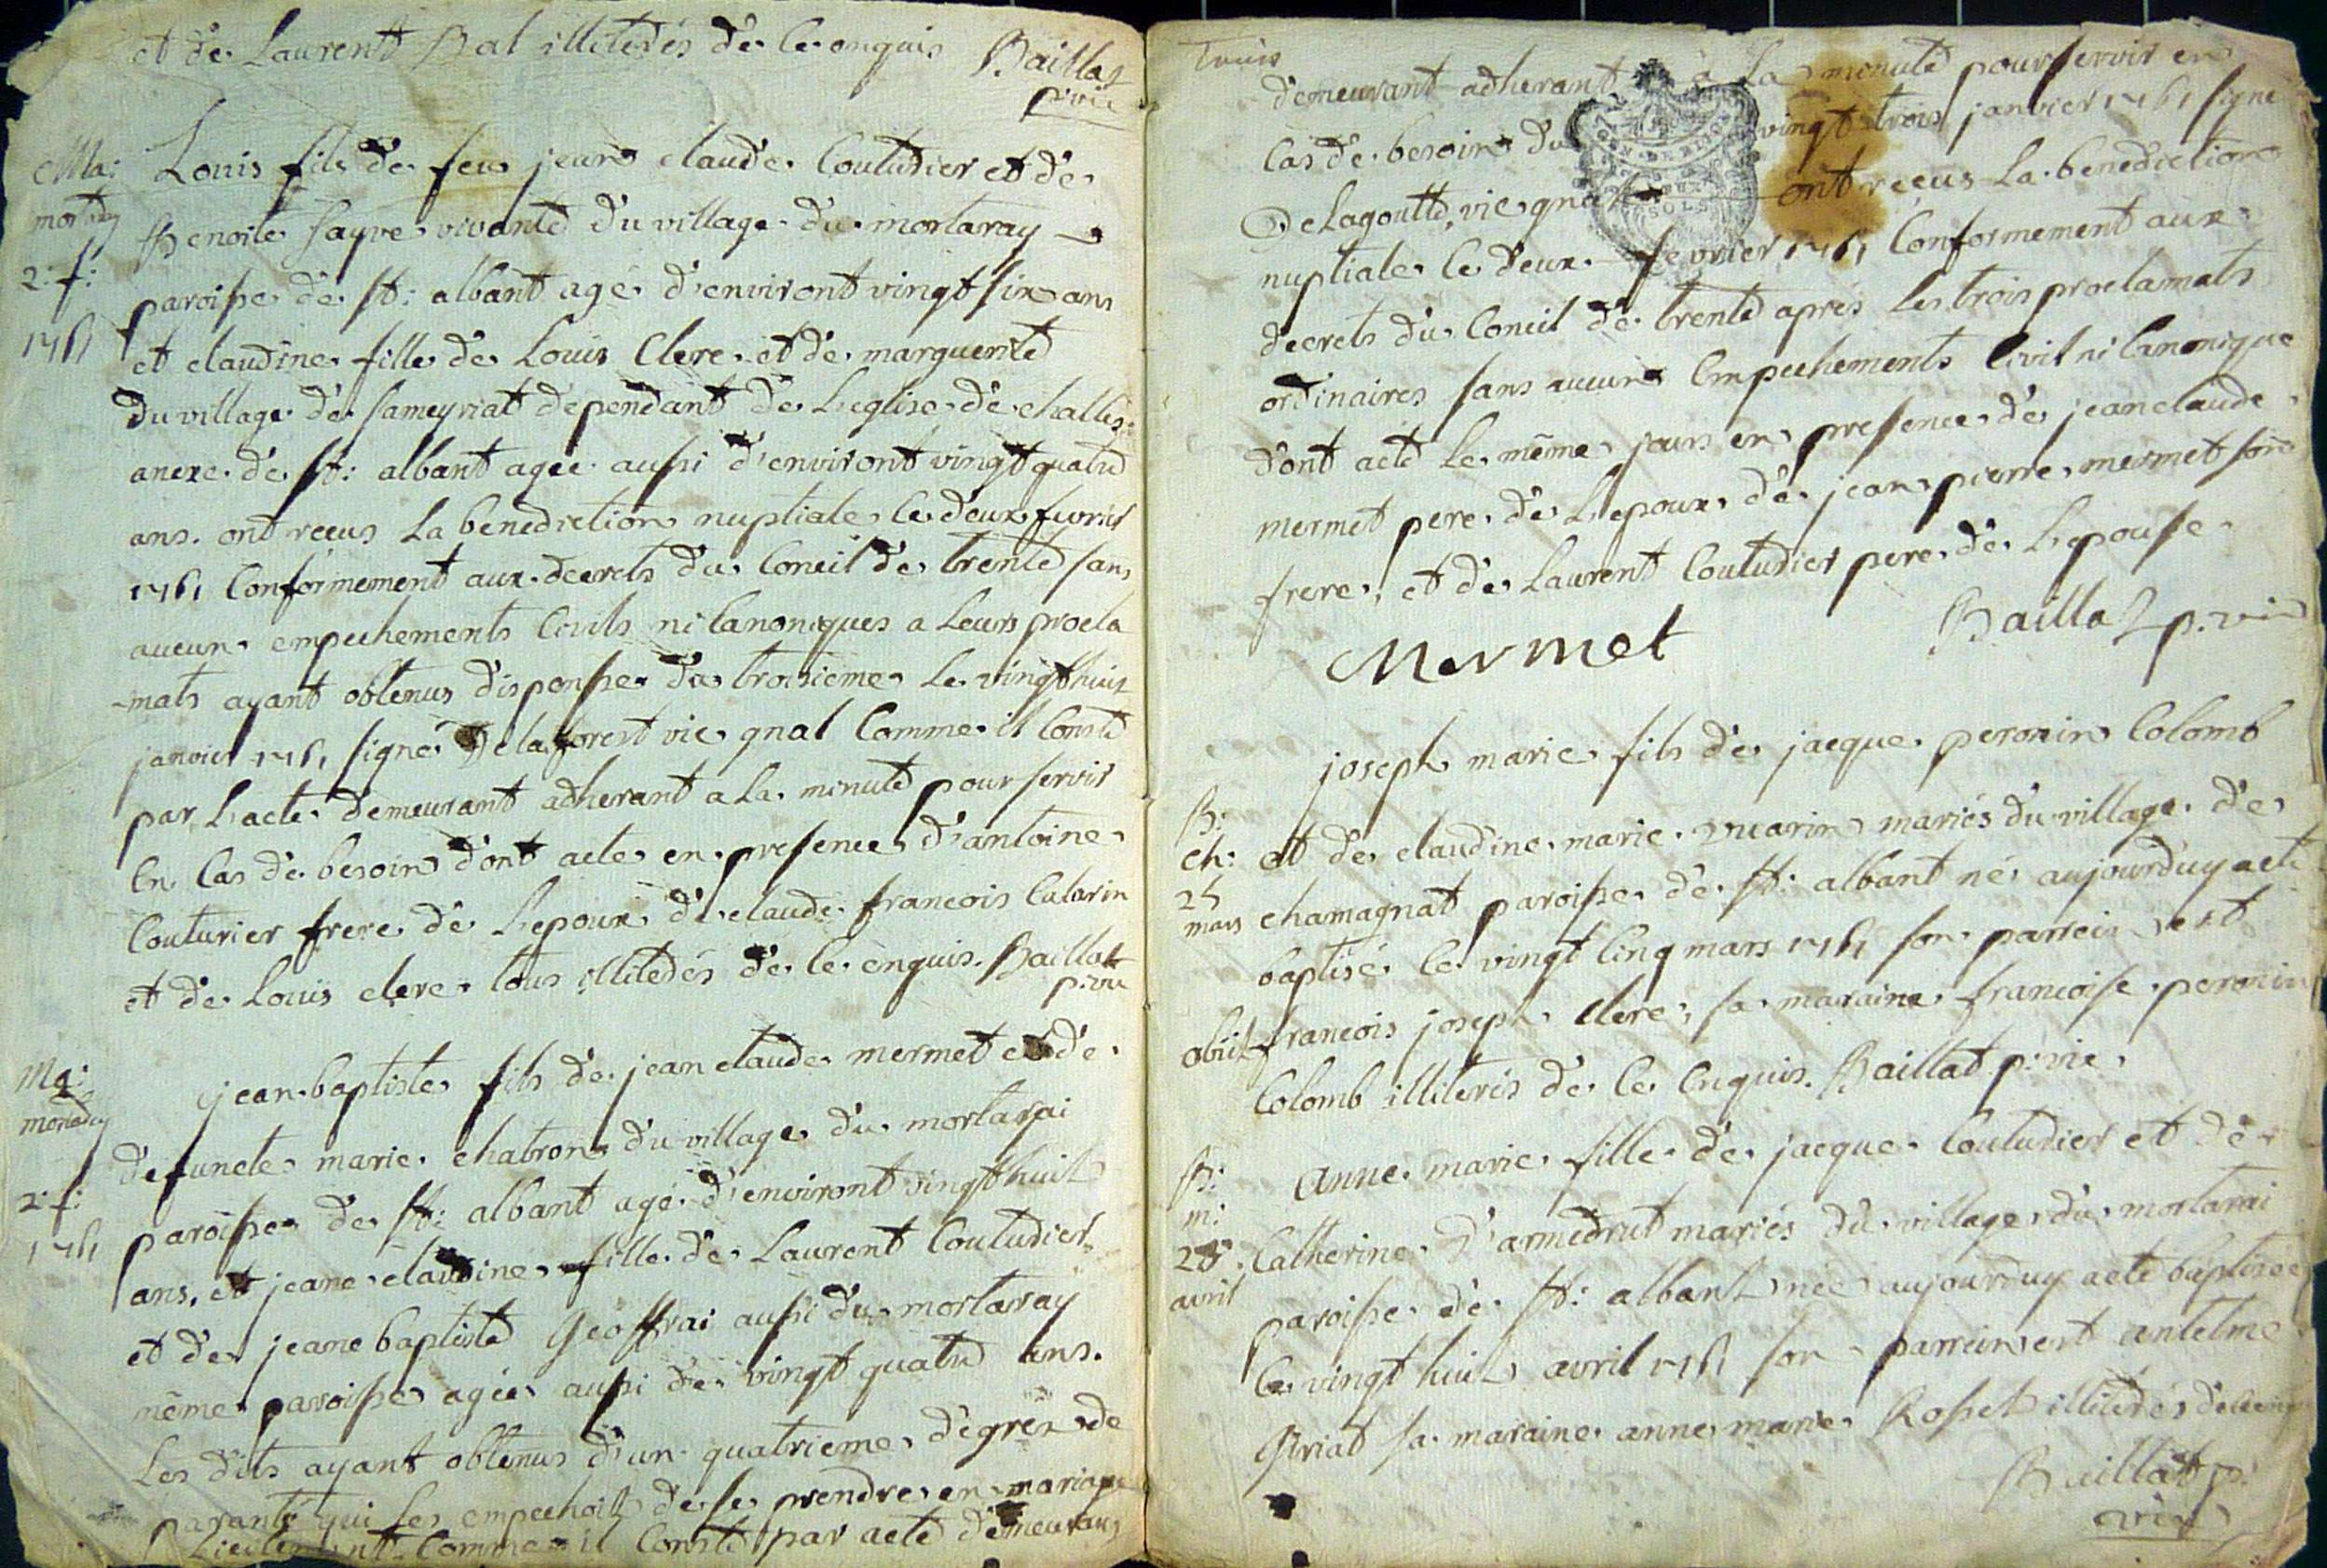 et de Laurent Bal illiterés de ce enquis Baillat
p: vic
Ma: Louis fils de feu jean claude Couturier et de
mortarey Benoite sayve vivante du village du mortaray
2: f: paroisse de St: albant agé d'environt vingt six ans
1761 et claudine fille de Louis Clerc et de marguerite
du village de sameyriat dependant de L'eglise de challes
anexe de St: albant agée aussi d'environt vingt quatre
ans. ont reçus La benediction nuptiale le deux fevrier
1761 Conformement aux decrets du Concil de trente sans
aucun empechements Civils ni Canoniques a Leurs procla
-mats ayant obtenus dispense du troisieme le vingt huit
janvier 1761 signé Delaforest vic gnal Comme il Conste
par L'acte demeurant adherant a La minute pour servir
en Cas de besoin dont acte en presence d'antoine
Couturier frere de L'epoux de claude francois Calarin
et de Louis clerc tous illiterés de ce enquis. Baillat
p: vic
Ma: jean-baptiste fils de jean claude mermet et de
mortarey defuncte marie chatron du village du mortarai
2: f: paroisse de St: albant agé d'environt vingt huit
1761 ans, et jeane claudine fille de Laurent Couturier
et de jeane baptiste Geoffrai aussi du mortaray
même paroisse agée aussi de vingt quatre ans.
Les dits ayant obtenus d'un quatrieme degrez de
paranté qui les empechoit de se prendre en mariage
Licitement Comme il Conste par acte demeurant
Trois
demeurant adherant a La minute pour servir en
Cas de besoin du vingt trois janvier 1761 signe
Delagoutte, vic gnal ont reçus La benediction
nuptiale le deux fevrier 1761 Conformement aux
decrets du Concil de trente après les trois proclamats
ordinaires sans aucun empechements Civil ni Canonique
dont acte le même jours en presence de jean claude
mermet pere de L'epoux, de jean pierre mermet son
frere, et de Laurent Couturier pere de L'epouse
Baillat p. vic
Mermet
joseph marie fils de jacque peronin Colomb
B:
ch: et de claudine marie vuarin mariés du village de
25 chamagnat paroisse de St: albant né aujourduy acté
mars baptisé le vingt Cinq mars 1761 son parrein est
obiit francois joseph Clerc, sa maraine francoise peronin
Colomb illiterés de ce Enquis. Baillat p: vic
B: Anne marie fille de jacque Couturier et de
m:
28. Catherine D'amedrut mariés du village du mortarai
avril paroisse de St: albant née aujourduy acté baptisée
le vingt huit avril 1761 son parrein est antelme
Griat sa maraine anne marie Rosset illiterés de ce enquis
Baillat p:
vic